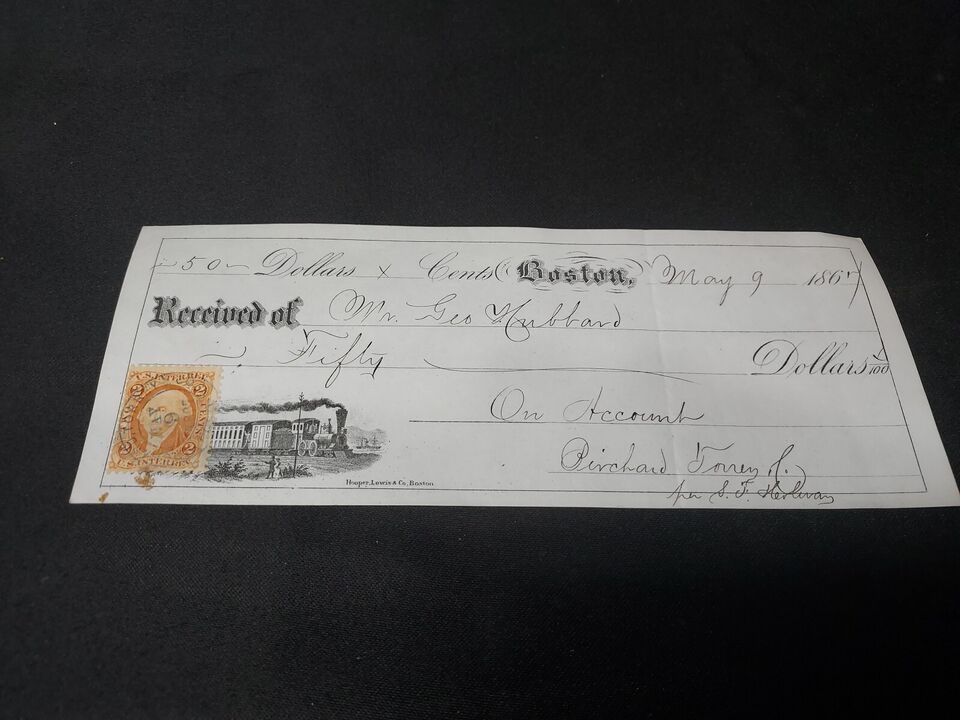 50 Dollars x Cents Boston, May 9 1867
Received of Mr. Geo Hubbard
Fifty Dollars x/100
On Account
Torrey
per S. F.
U.S. INTER. REV.
2 2
CENTS
2 2
U.S. INTER. REV.
MAY
9
Hooper, Lewis & Co. Boston